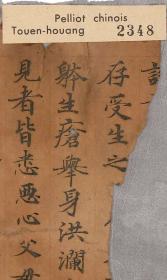 Pelliot chinois
Touen-houang 2348
存受生之
躰生瘡舉身洪瀾
見者皆悉惡心父母